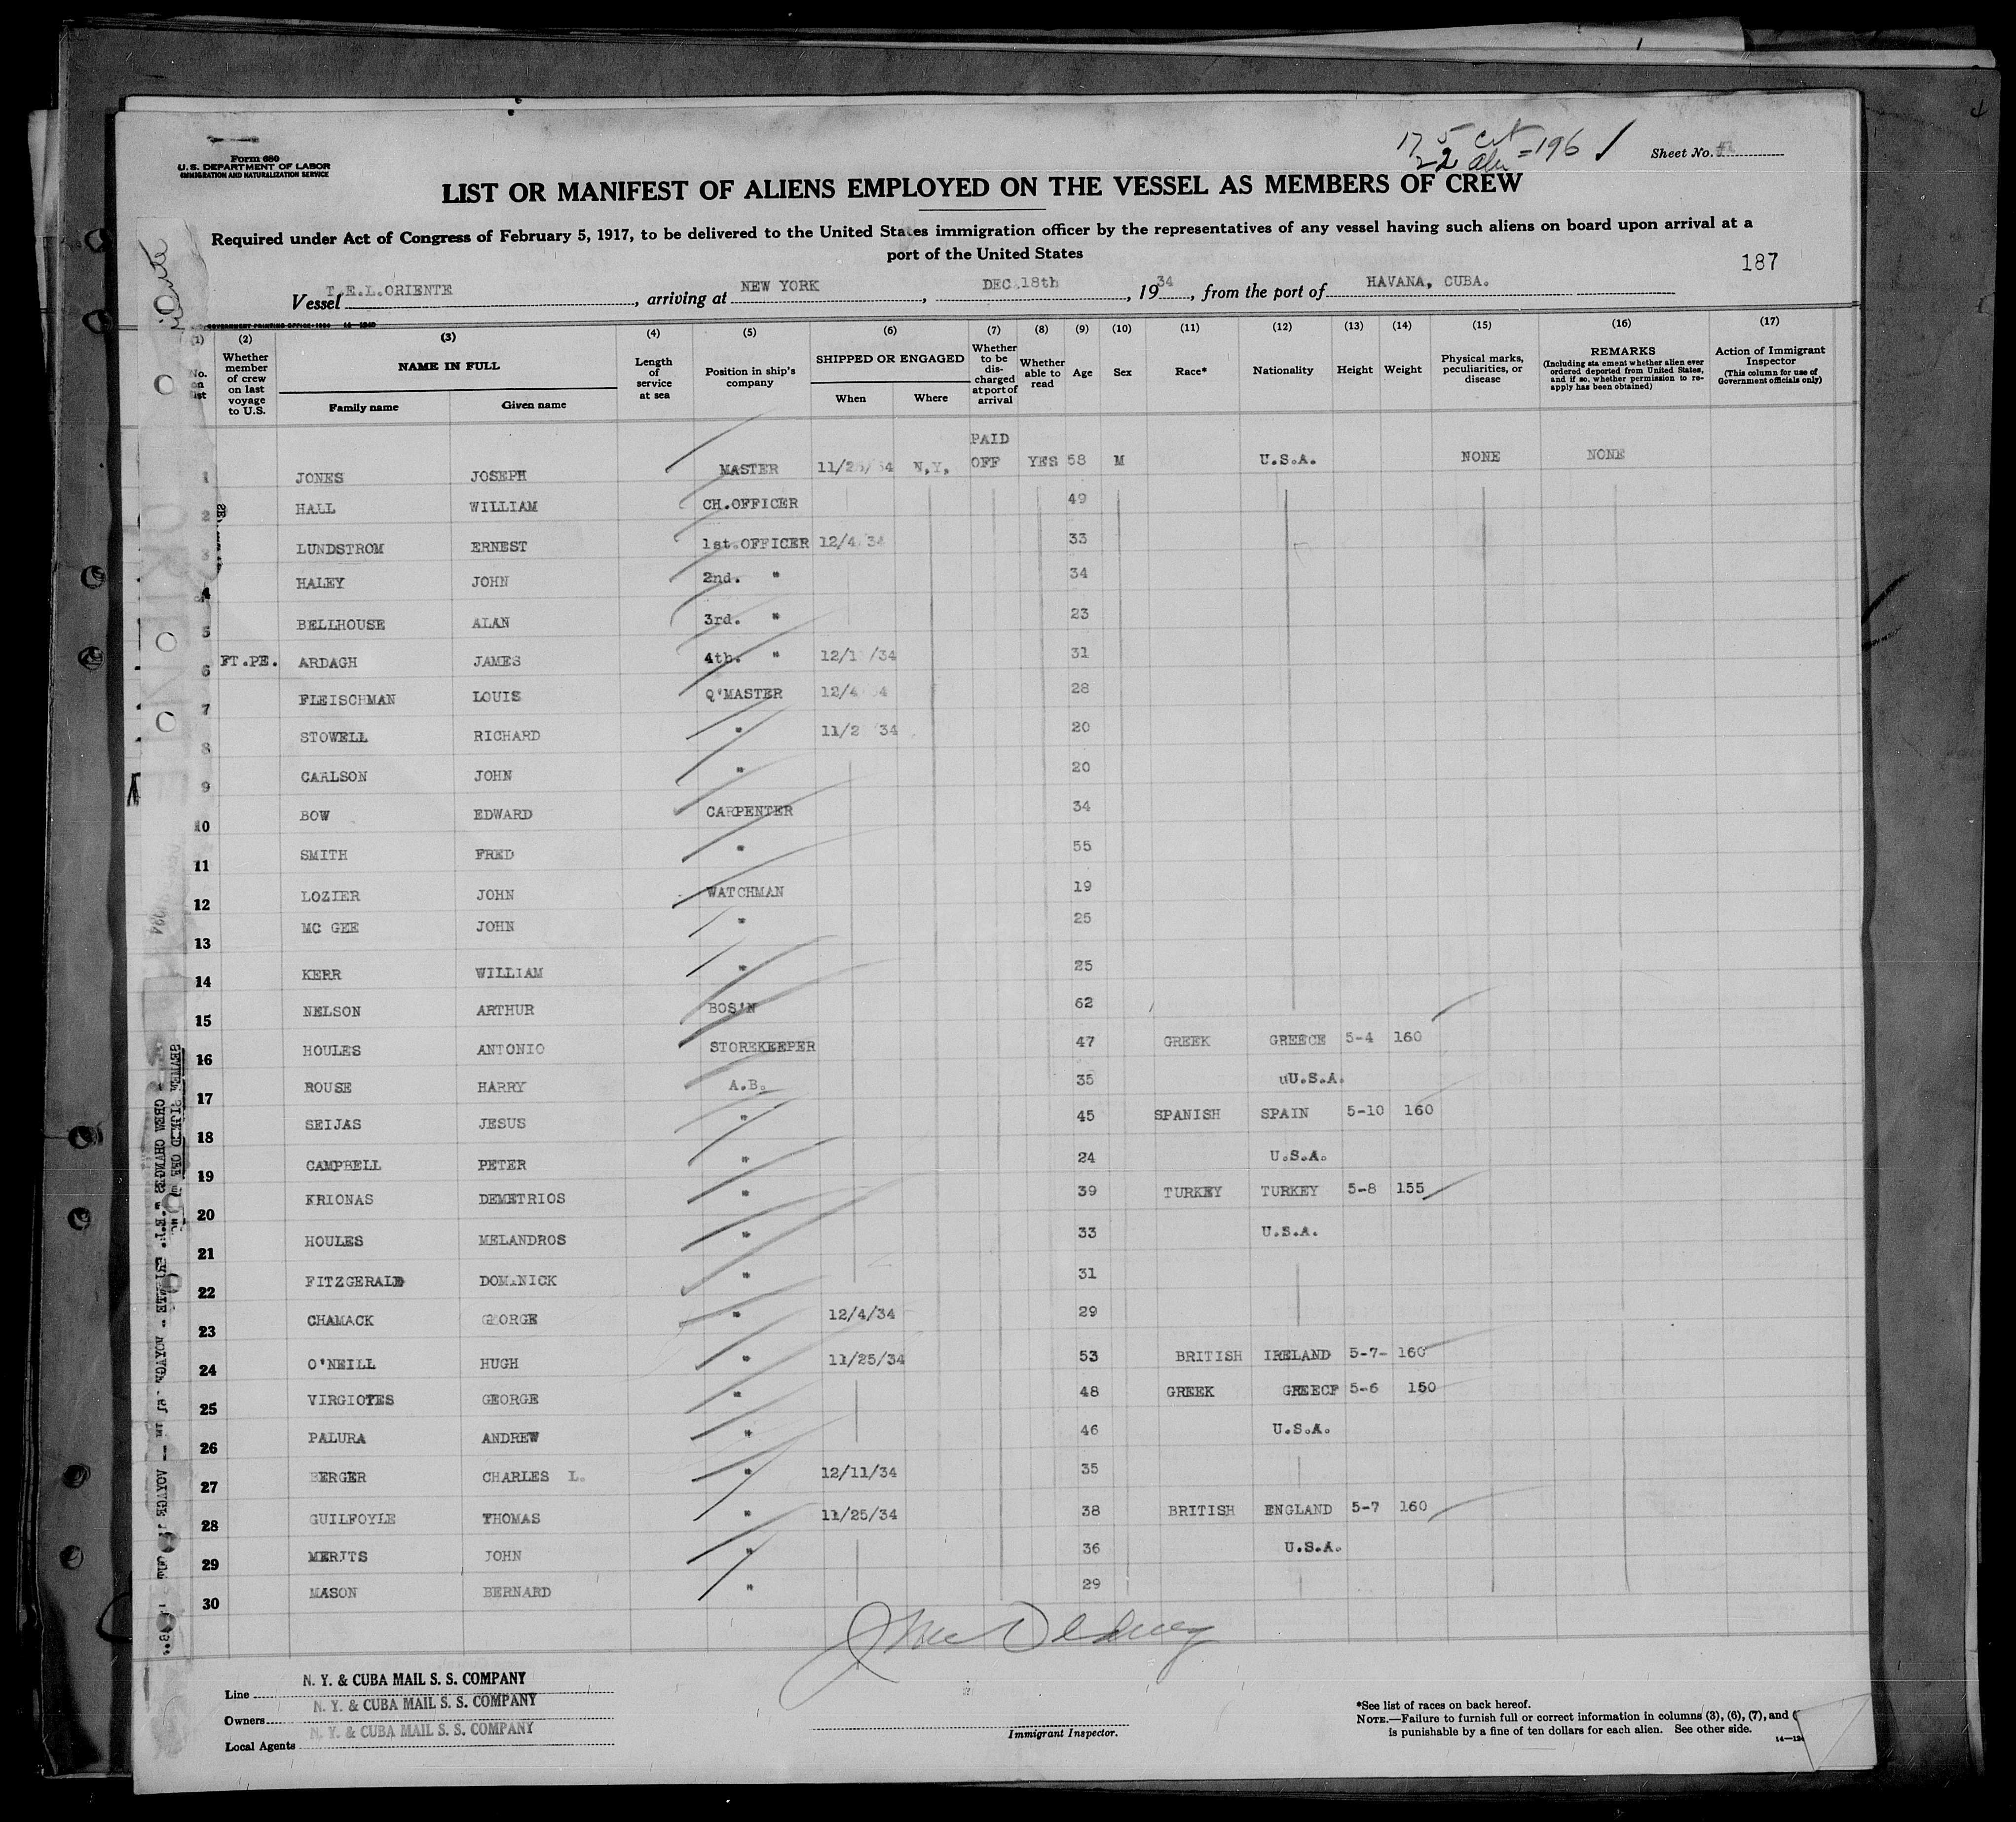 Form 680
U. S. DEPARTMENT OF LABOR
IMMIGRATION AND NATURALIZATION SERVICE
175 cit
22 = 196
Sheet No. #1
LIST OR MANIFEST OF ALIENS EMPLOYED ON THE VESSEL AS MEMBERS OF CREW
Required under Act of Congress of February 5, 1917, to be delivered to the United States immigration officer by the representatives of any vessel having such aliens on board upon arrival at a
port of the United States
187
Vessel T.E.L.ORIENTE, arriving at NEW YORK, DEC.18th, 1934, from the port of HAVANA, CUBA.
(1) (2) (3) (4) (5) (6) (7) (8) (9) (10) (11) (12) (13) (14) (15) (16) (17)
No. on list
Whether member of crew on last voyage to U.S.
NAME IN FULL
Family name Given name
Length of service at sea
Position in ship's company
SHIPPED OR ENGAGED
When Where
Whether to be discharged at port of arrival
Whether able to read
Age
Sex
Race*
Nationality
Height
Weight
Physical marks, peculiarities, or disease
REMARKS
(Including sta ement whether alien ever ordered deported from United States, and if so, whether permission to reapply has been obtained)
Action of Immigrant Inspector
(This column for use of Government officials only)
1 JONES JOSEPH MASTER 11/25/34 N,Y, PAID OFF YES 58 M U.S.A. NONE NONE
2 HALL WILLIAM CH.OFFICER 49
3 LUNDSTROM ERNEST 1st.OFFICER 12/4 34 33
4 HALEY JOHN 2nd. " 34
5 BELLHOUSE ALAN 3rd. " 23
6 FT.PE. ARDAGH JAMES 4th. " 12/1 /34 31
7 FLEISCHMAN LOUIS Q'MASTER 12/4 34 28
8 STOWELL RICHARD " 11/2 34 20
9 CARLSON JOHN " 20
10 BOW EDWARD CARPENTER 34
11 SMITH FRED " 55
12 LOZIER JOHN WATCHMAN 19
13 MC GEE JOHN " 25
14 KERR WILLIAM " 25
15 NELSON ARTHUR BOS'N 62
16 HOULES ANTONIO STOREKEEPER 47 GREEK GREECE 5-4 160
17 ROUSE HARRY A.B. 35 uU.S.A.
18 SEIJAS JESUS " 45 SPANISH SPAIN 5-10 160
19 CAMPBELL PETER " 24 U.S.A.
20 KRIONAS DEMETRIOS " 39 TURKEY TURKEY 5-8 155
21 HOULES MELANDROS " 33 U.S.A.
22 FITZGERALD DOMINICK " 31
23 CHAMACK GEORGE " 12/4/34 29
24 O'NEILL HUGH " 11/25/34 53 BRITISH IRELAND 5-7- 160
25 VIRGIOTES GEORGE " 48 GREEK GREECE 5-6 150
26 PALURA ANDREW " 46 U.S.A.
27 BERGER CHARLES L. " 12/11/34 35
28 GUILFOYLE THOMAS " 11/25/34 38 BRITISH ENGLAND 5-7 160
29 MERJTS JOHN " 36 U.S.A.
30 MASON BERNARD " 29
Line N. Y. & CUBA MAIL S. S. COMPANY
Owners N. Y. & CUBA MAIL S. S. COMPANY
Local Agents N. Y. & CUBA MAIL S. S. COMPANY
Immigrant Inspector.
*See list of races on back hereof.
NOTE.—Failure to furnish full or correct information in columns (3), (6), (7), and (
is punishable by a fine of ten dollars for each alien. See other side.